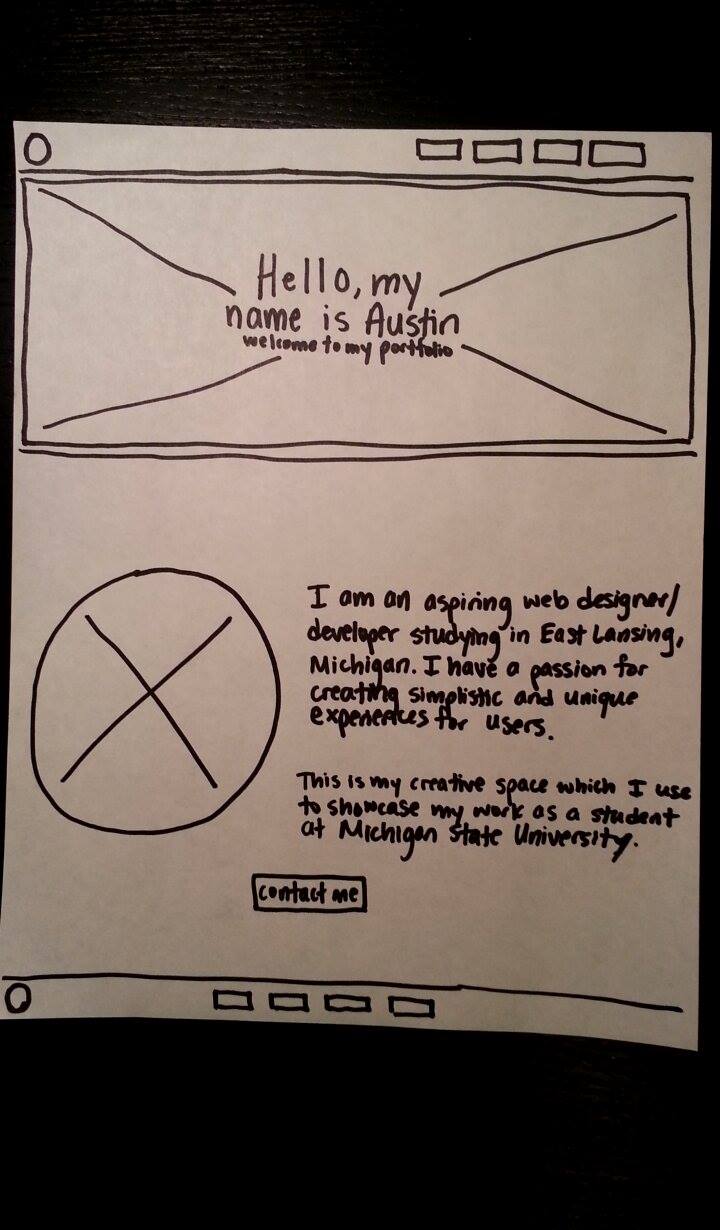 Hello, my
name is Austin
welcome to my portfolio
I am an aspiring web designer/
developer studying in East Lansing,
Michigan. I have a passion for
creating simplistic and unique
experiences for users.
This is my creative space which I use
to showcase my work as a student
at Michigan State University.
contact me